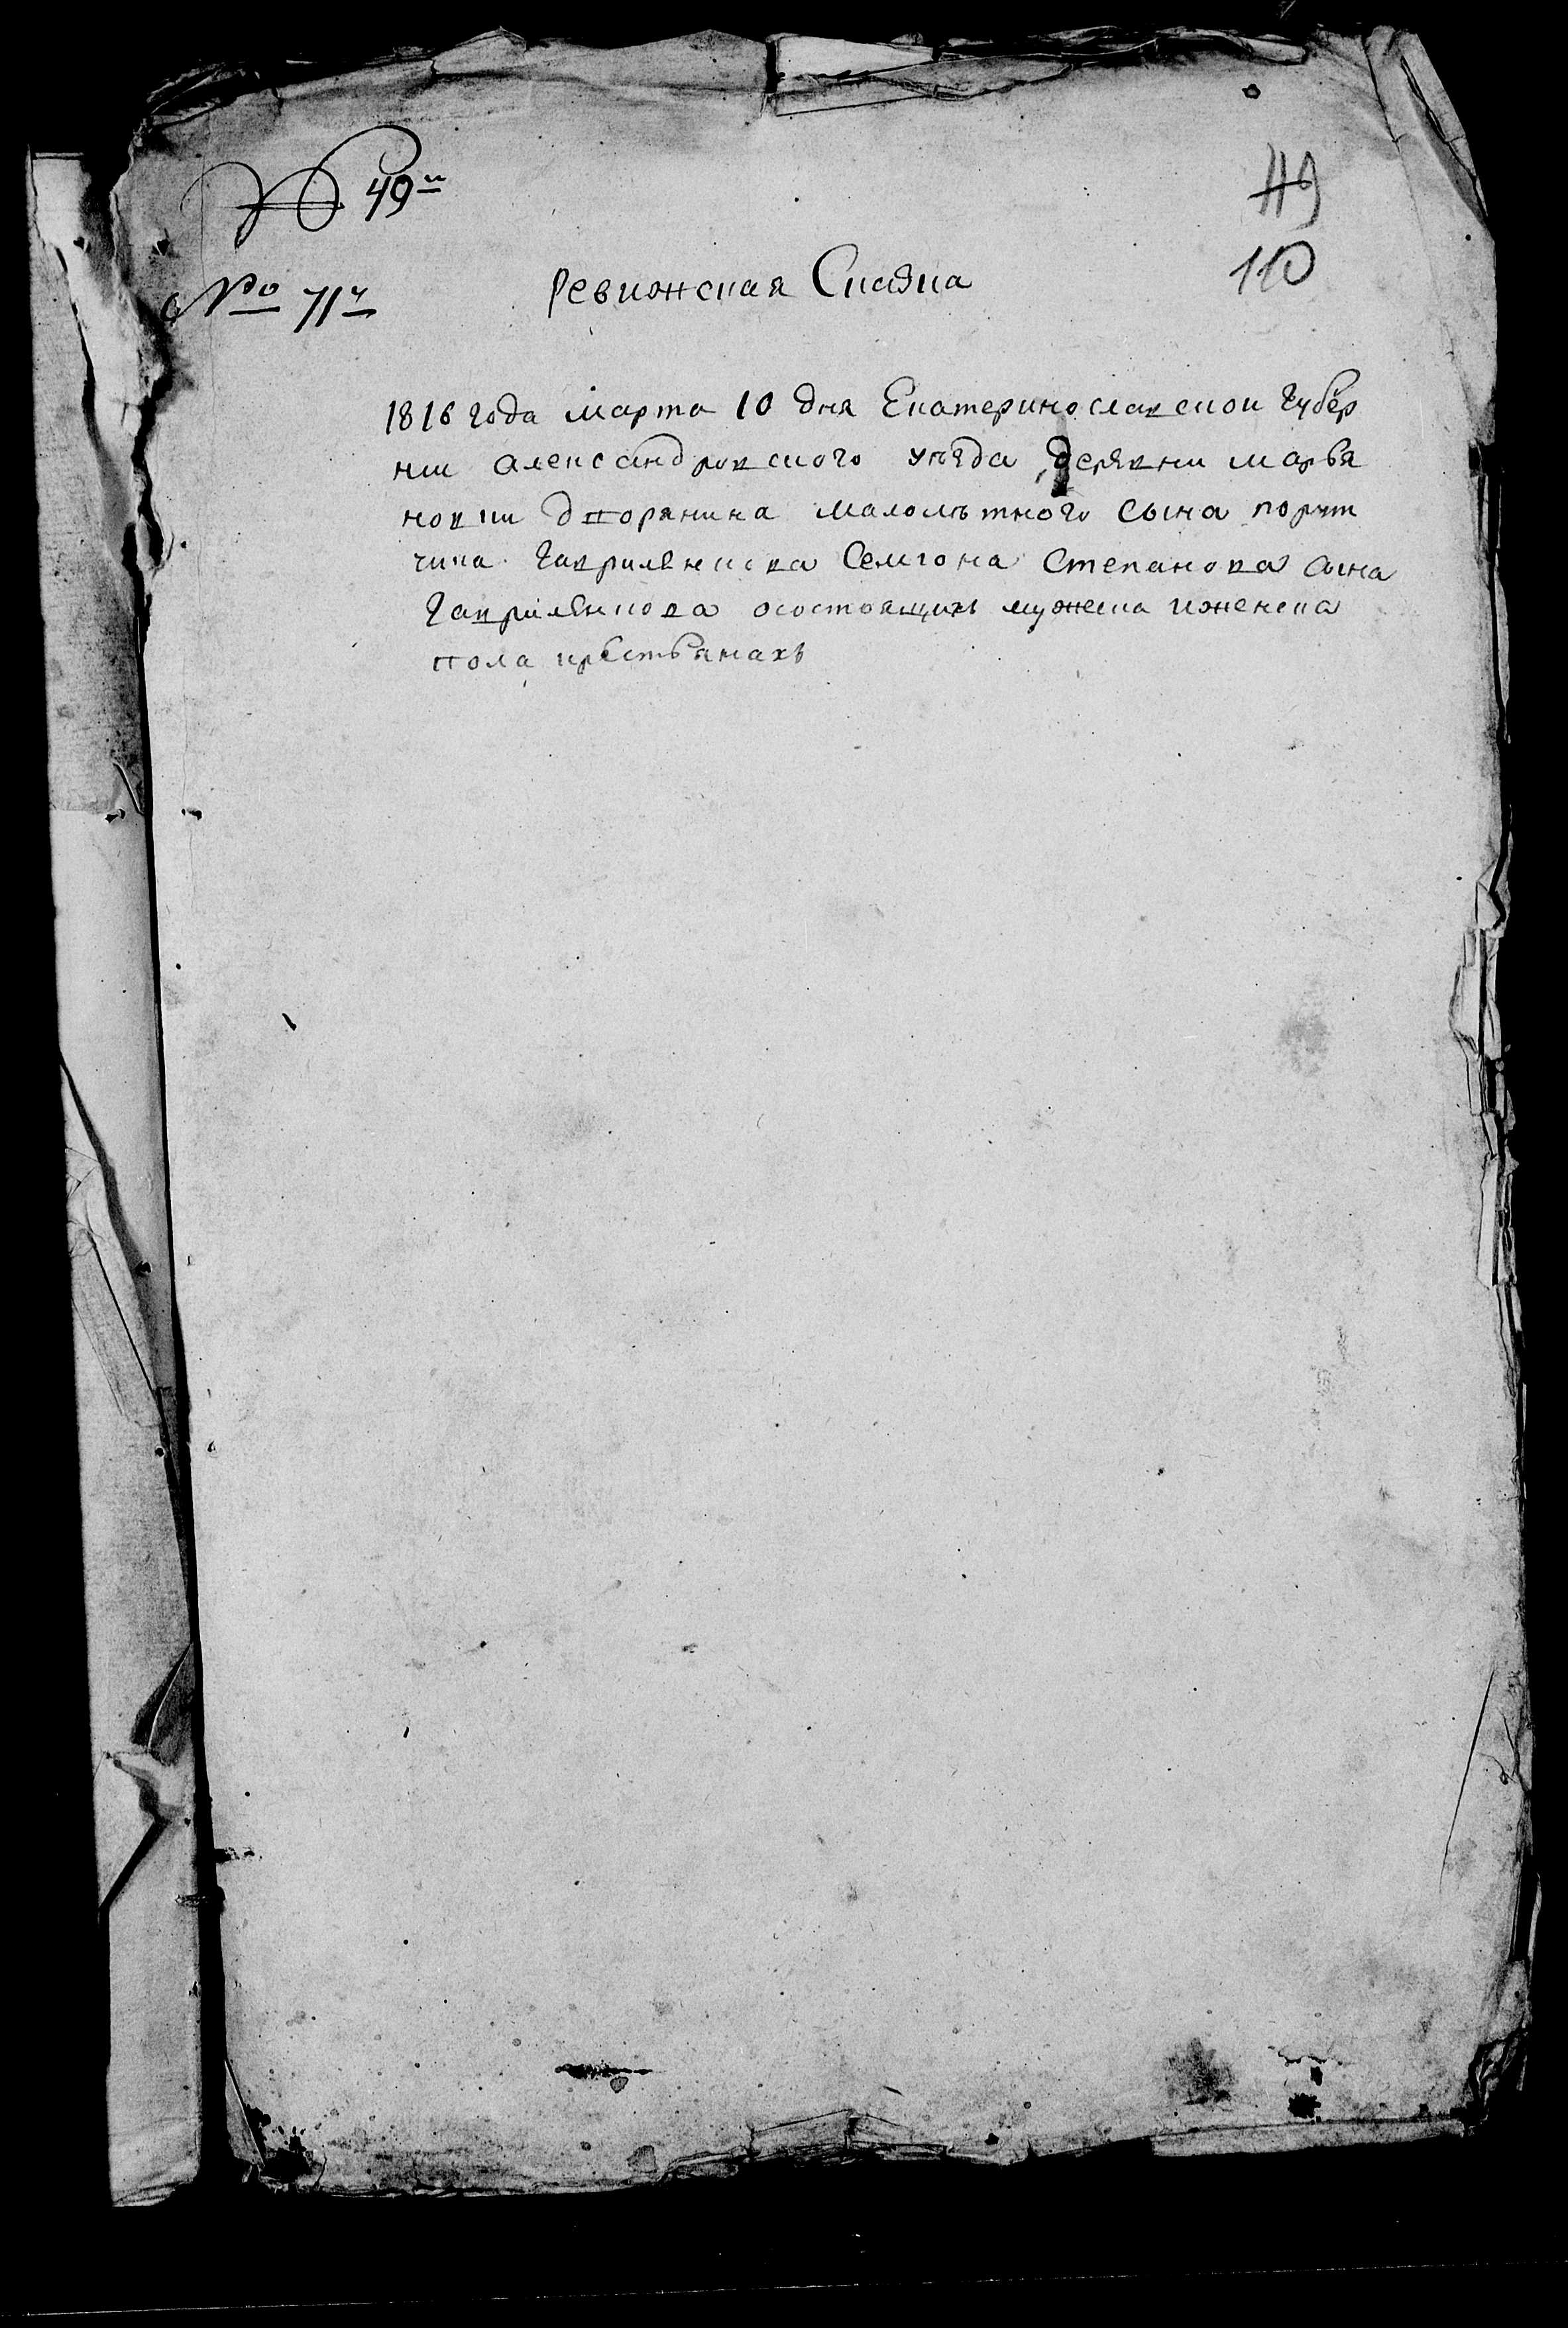 № 49й
119
110
№ 71й
Ревижская Скаска
1816 года марта 10 дня Екатеринославской губер
нии александровского уезда деревни марья
новки дворянина малолѣтного сына порут
чика гавриленкова Семиона Степанова сына
гавриленкова осостоящихъ мужеска иженска
пола крестьянахъ